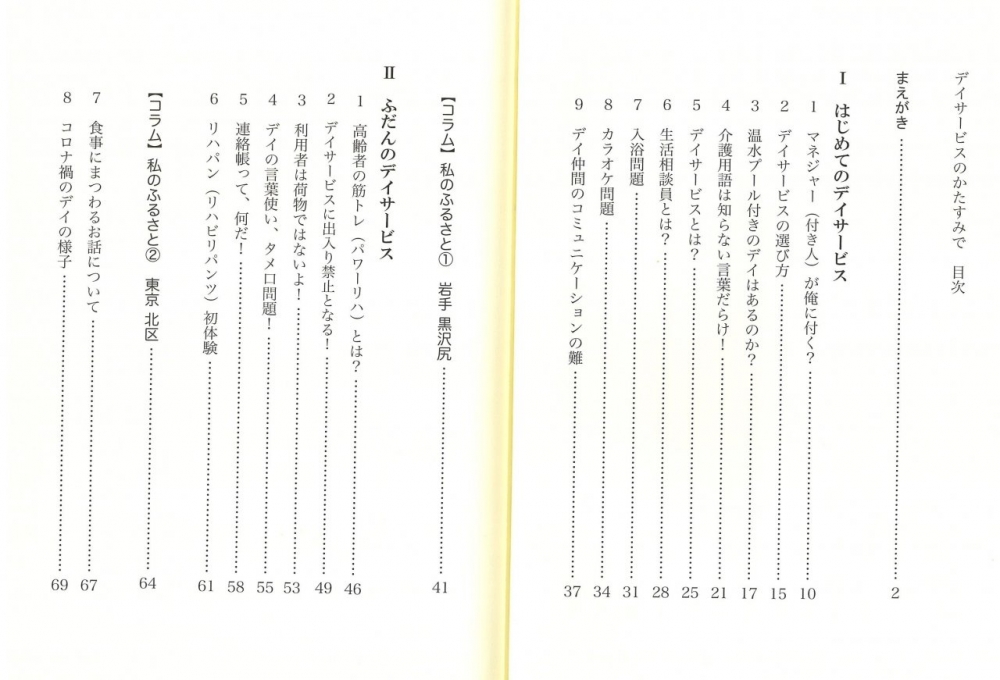 デイサービスのかたすみで　目次
まえがき……………………2
Ⅰ　はじめてのデイサービス
1　マネジャー（付き人）が俺に付く？……………………10
2　デイサービスの選び方……………………15
3　温水プール付きのデイはあるのか？……………………17
4　介護用語は知らない言葉だらけ！……………………21
5　デイサービスとは？……………………25
6　生活相談員とは？……………………28
7　入浴問題……………………31
8　カラオケ問題……………………34
9　デイ仲間のコミュニケーションの難……………………37
【コラム】私のふるさと①　岩手 黒沢尻……………………41
Ⅱ　ふだんのデイサービス
1　高齢者の筋トレ（パワーリハ）とは？……………………46
2　デイサービスに出入り禁止となる！……………………49
3　利用者は荷物ではないよ！……………………53
4　デイの言葉使い、タメ口問題！……………………55
5　連絡帳って、何だ！……………………58
6　リハパン（リハビリパンツ）初体験……………………61
【コラム】私のふるさと②　東京 北区……………………64
7　食事にまつわるお話について……………………67
8　コロナ禍のデイの様子……………………69